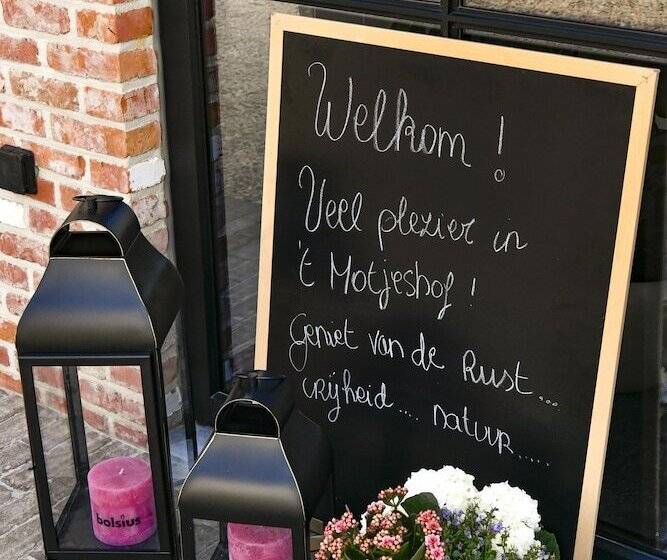 Welkom !
Veel plezier in
't Motjeshof !
Geniet van de Rust...
vrijheid.... natuur.....
bolsius